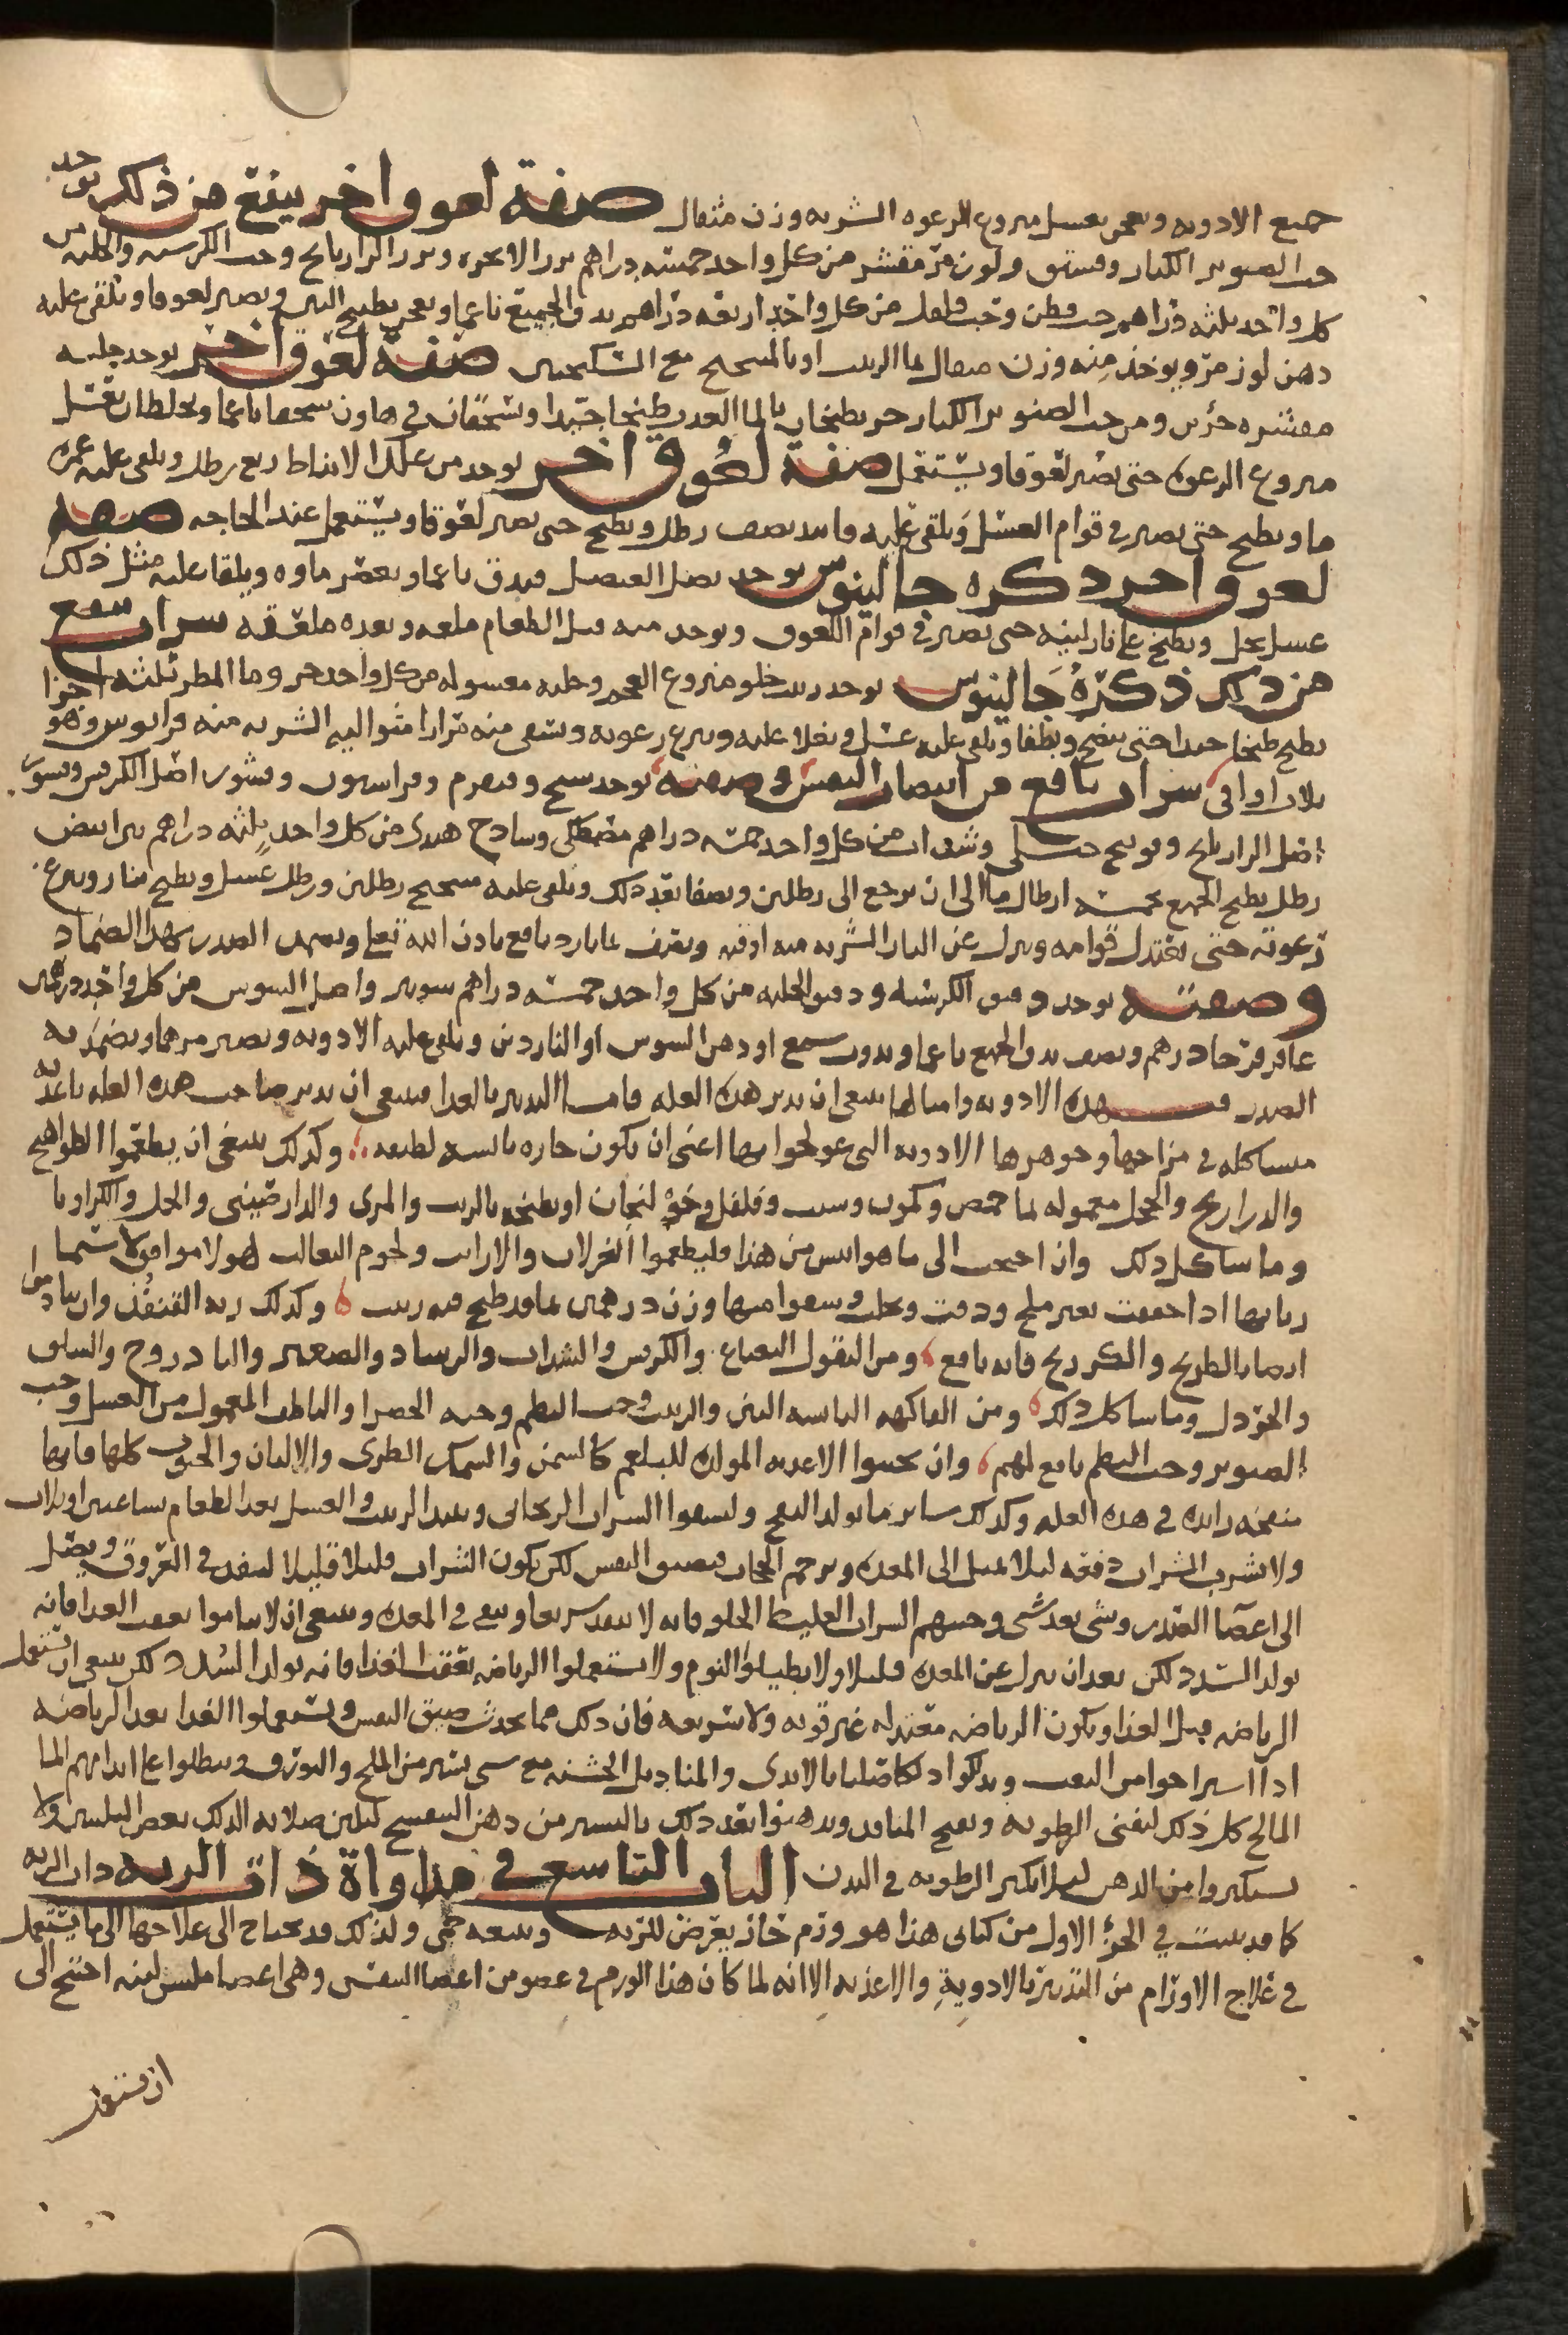 جميع الادويه ويعجن بعسل منزوع الرغوه الشربه وزن مثقال صفة لعوق اخر ينفع من ذلك يوخذ
حب الصنوبر الكبار وفستق ولوز مرّ مقشر من كل واحد خمسه دراهم بزر الانجره وبزر الرازيانج وحب الكرسنه والحلبه من
كل واحد ثلثه دراهم حب قطن وحب فلفل من كل واحد اربعه دراهم يدق الجميع ناعما ويعجن بطبيخ التين ويصير لعوقا ويلقى عليه
دهن لوز مرّ ويوخذ منه وزن مثقال بما الزبيب او بالميبختج مع السكنجبين صفة لعوق اخر يوخذ حلبه
مقشره جزئين ومن حب الصنوبر الكبار جز يطبخان بالما العذب طبخا جيدا ويسحقان في هاون سحقا ناعما ويخلطان بعسل
منزوع الرغوه حتى يصير لعوقا ويستعمل صفة لعُوق اخر يوخذ من علك الانباط ربع رطل ويلقى عليه غمره
ما ويطبخ حتى يصير في قوام العسل ويلقى عليه فانيد نصف رطل ويطبخ حتى يصير لعوقا ويستعمل عند الحاجه صفه
لعوق اخر ذكره جالينوس يوخذ بصل العنصل فيدق ناعما ويعصر ماوه ويلقا عليه مثل ذلك
عسل نحل ويطبخ على نار لينه حتى يصير في قوام اللعوق ويوخذ منه قبل الطعام ملعقه وبعده ملعقه شراب ينفع
من ذلك ذكرهُ جَالينوس يوخذ زبيب حلو منزوع العجم وحلبه مغسوله من كل واحد جز وما المطر ثلثه اجزا
يطبخ طبخا جيدا حتى ينضج ويصفا ويلقى عليه عسل ويغلا عليه وينزع رغوته ويسقى منه مرارا متواليه الشربه منه قوانوس وهو
ثلاث اواقى شراب نافع من انتصاب النفس وصفته يوخذ شيح وقيصوم وفراسيون وقشور اصل الكرفس وقشور
اصل الرازيانج وفوتنج جبلى وسذاب من كل واحد خمسه دراهم مصطكى وساذج هندى من كل واحد ثلثه دراهم تين ابيض
رطل يطبخ الجميع بخمسه ارطال ما الى ان يرجع الى رطلين ويصفا بعد ذلك ويلقى عليه ميبختج رطلين ورطل عسل ويطبخ بنار وينزع
رغوته حتى يعتدل قوامه وينزل عن النار الشربه منه اوقيه ويصرف بما بارد نافع باذن الله تعلى ويضمد الصدر بهذا الضماد
وصفته يوخذ دقيق الكرسنه ودقيق الحلبه من كل واحد خمسه دراهم سوسن واصل السوس من كل واحد درهمين
عاقرقرحا درهم ونصف يدق الجميع ناعما ويذوب شمع او دهن السوس او الناردين ويلقى عليه الادويه ويصير مرهما ويضمد به
الصدر فبهذه الادويه وامثالها ينبغى ان يدبر هذه العله فاما التدبير بالغذا فينبغى ان يدبر صاحب هذه العله باغذيه
مشاكله في مزاجها وجوهرها الادويه التى عولجوا بها اعنى ان يكون حاره يابسه لطيفه وكذلك ينبغى ان يطعموا الطواهيج
والدراريج والحجل معموله بما حمص وكمون وشبت وفلفل وخوْلنجان او يطبخه بالزيت والمرى والدارصينى والخل والكراويا
وما شاكل ذلك وان احتجت الى ما هو ايبس من هذا فليطعموا الغزلان والارانب ولحوم الثعالب لهولا موافق لا سيما
رياتها اذا جففت بغير ملح ودقت ونخلت وسقوا منها وزن درهمين بما قد طبخ فيه زبيب وكذلك ريه القنفُذ وان يتادموا
ايضا بالطريخ والكرديح فانه نافع ومن البقول النعناع والكرفس والسذاب والرشاد والصعتر والباذروج والسلق
والخردل وما شاكل ذلك ومن الفاكهه اليابسه التين والزبيب وحب البطم وحبه الخضرا والناطف المعمول من العسل وحب
الصنوبر وحب البطم نافع لهم وان يجتنبوا الاغذيه المولده للبلغم كالسمن والسمك الطرى والالبان والحبوب كلها فانها
منفخه زايده في هذه العله وكذلك ساير ما يولد النفخ وليسقوا الشراب الريحانى ونبيذ الزبيب والعسل بعد الطعام بساعتين او ثلاث
ولا يشرب الشراب دفعه ليلا يميل الى المعده ويزحم الحجاب فيضيق النفس لكن يكون الشراب قليلا قليلا لينفذ في العروق ويصل
الى اعضا الصدر وشى بعد شى وجنبهم الشراب الغليظ الحلو فانه لا ينفذ سريعا ويبقى في المعده وينبغى ان لا يناموا بعقب الغذا فانه
يولد السدد لكن بعد ان ينزل عن المعده قليلا ولا يطيلوْا النوم ولا يستعملوا الرياضه بعقب الغذا فانه يولد السُدد لكن ينبغى ان تستعمل
الرياضه قبل الغذا ويكون الرياضه معتدله غير قويه ولا سريعه فان ذلك مما يحدث ضيق النفس ويستعملوا الغذا بعد الرياضه
اذا استراحوا من التعب ويدلكوا دلكا صلبا بالايدى والمناديل الخشنه مع شى يسير من الملح والبورق ويبطلوا على ابدانهم الما
المالح كل ذلك ليفنى الرطوبه ويفتح المنافذ ويدهنوا بعد ذلك باليسير من دهن البنفسج لتلين صلابه الدلك بعض التليين ولا
يستكثروا من الدهن ليلا يكثر الرطوبه في البدن الباب التاسع في مداواة ذات الريه ذات الريه
كما قد بينت في الجزْ الاول من كتابى هذا هو ورم حار يعرض للريه ويتبعه حمى ولذلك قد يحتاج الى علاجها الى ما يستعمل
في علاج الاورام من التدبير بالادوية والاغذيه الا انه لما كان هذا الورم في عضو من اعضا النفس وهى اعضا ملس لينه احتيج الى
ان يستعمل